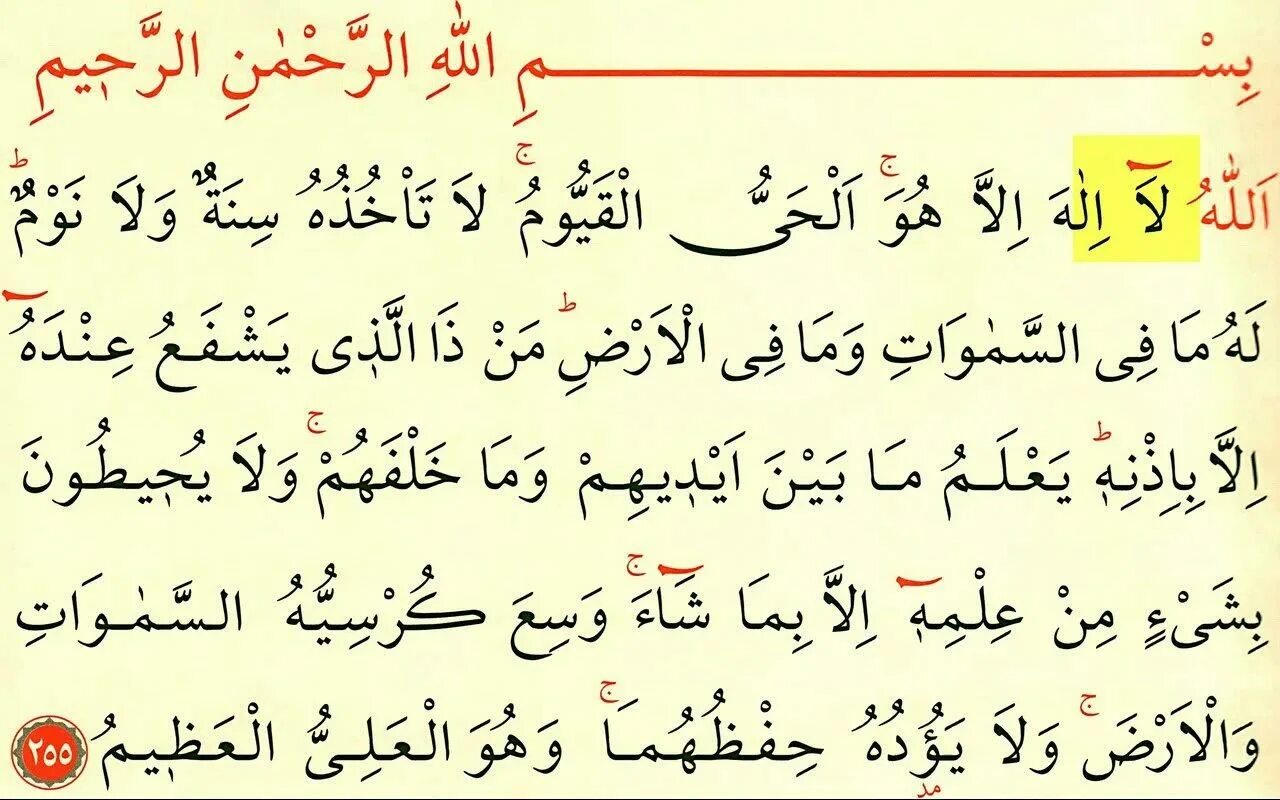 بِسْمِ اللّٰهِ الرَّحْمٰنِ الرَّح۪يمِ
اَللّٰهُ لَٓا اِلٰهَ اِلَّا هُوَۚ اَلْحَيُّ الْقَيُّومُۚ لَا تَاْخُذُهُ سِنَةٌ وَلَا نَوْمٌؕ
لَهُ مَا فِى السَّمٰوَاتِ وَمَا فِى الْاَرْضِؕ مَنْ ذَا الَّذ۪ى يَشْفَعُ عِنْدَهُٓ
اِلَّا بِاِذْنِه۪ؕ يَعْلَمُ مَا بَيْنَ اَيْد۪يهِمْ وَمَا خَلْفَهُمْۚ وَلَا يُح۪يطُونَ
بِشَىْءٍ مِنْ عِلْمِه۪ٓ اِلَّا بِمَا شَٓاءَۚ وَسِعَ كُرْسِيُّهُ السَّمٰوَاتِ
وَالْاَرْضَۚ وَلَا يَؤُ۫دُهُ حِفْظُهُمَاۚ وَهُوَ الْعَلِىُّ الْعَظ۪يمُ ٢٥٥
مد